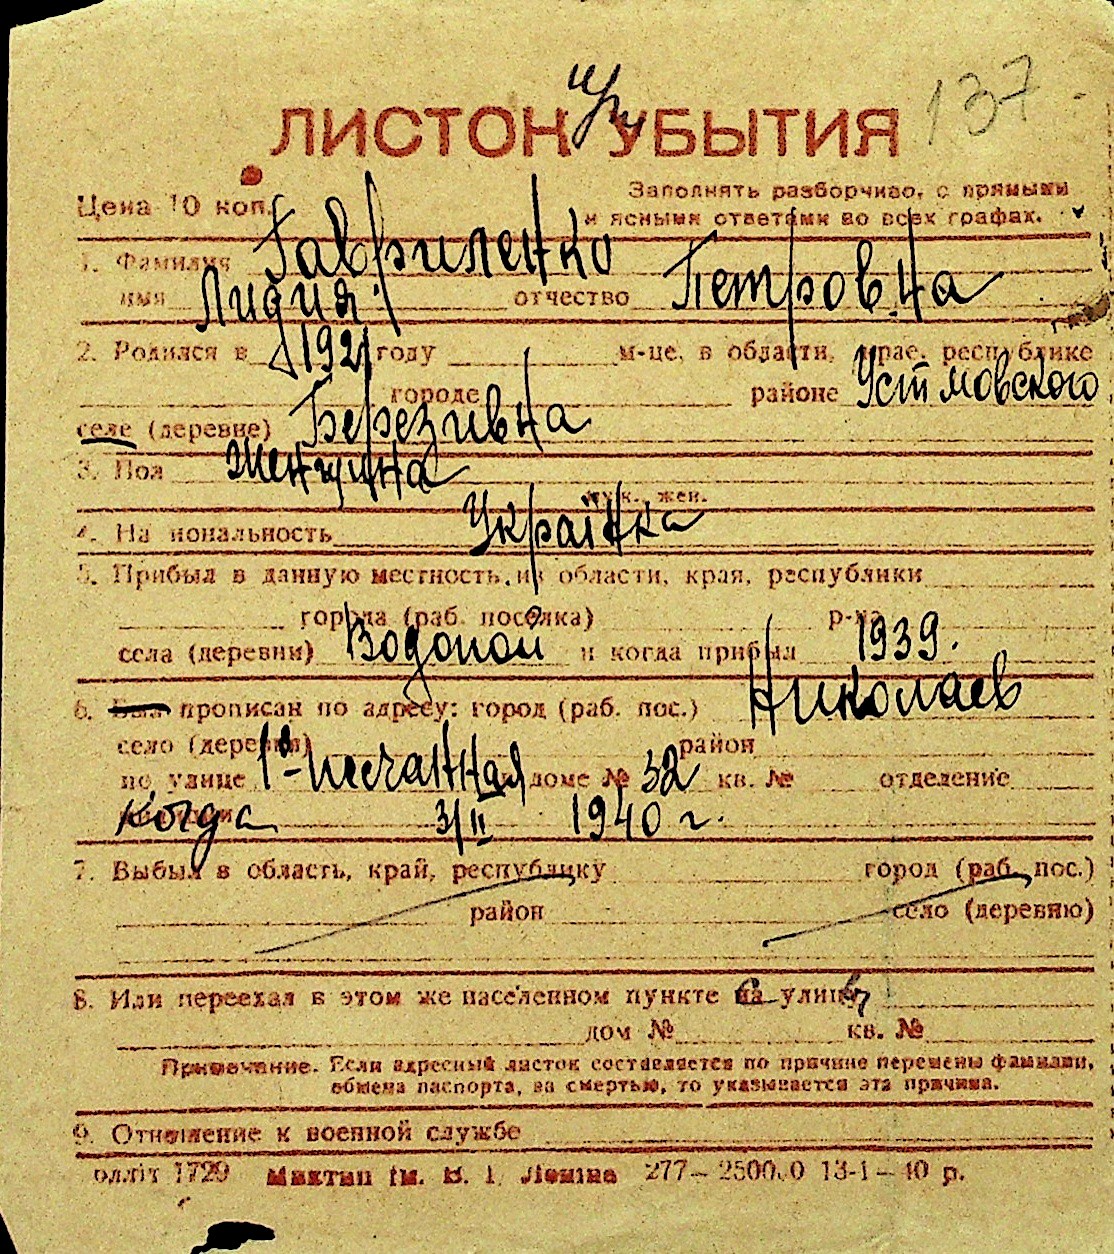 137
ЛИСТОК УБЫТИЯ
Цена 10 коп.
Заполнять разборчиво, с прямыми
и ясными ответами во всех графах.
1. Фамилия Гавриленко
имя Лидия отчество Петровна
2. Родился в 1921 году м-це, в области, крае, республике
городе районе
селе (деревне) Березивна
3. Пол Женщина
муж., жен.
4. Национальность Українка
5. Прибыл в данную местность из области, края, республики
города (раб. поселка) р-на
села (деревни) Водопой и когда прибыл 1939.
6. Был прописан по адресу: город (раб. пос.) Николаев
село (деревня) район
по улице 1я Песчанная доме № 32 кв. № отделение
милиции когда 3/II 1940 г.
7. Выбыл в область, край, республику город (раб. пос.)
район село (деревню)
8. Или переехал в этом же населенном пункте на улицу
дом № кв. №
Примечание. Если адресный листок составляется по причине перемены фамилии,
обмена паспорта, за смертью, то указывается эта причина.
9. Отношение к военной службе
олліт 1729 Миктип ім. В. І. Леніна 277— 13-1—40 р.